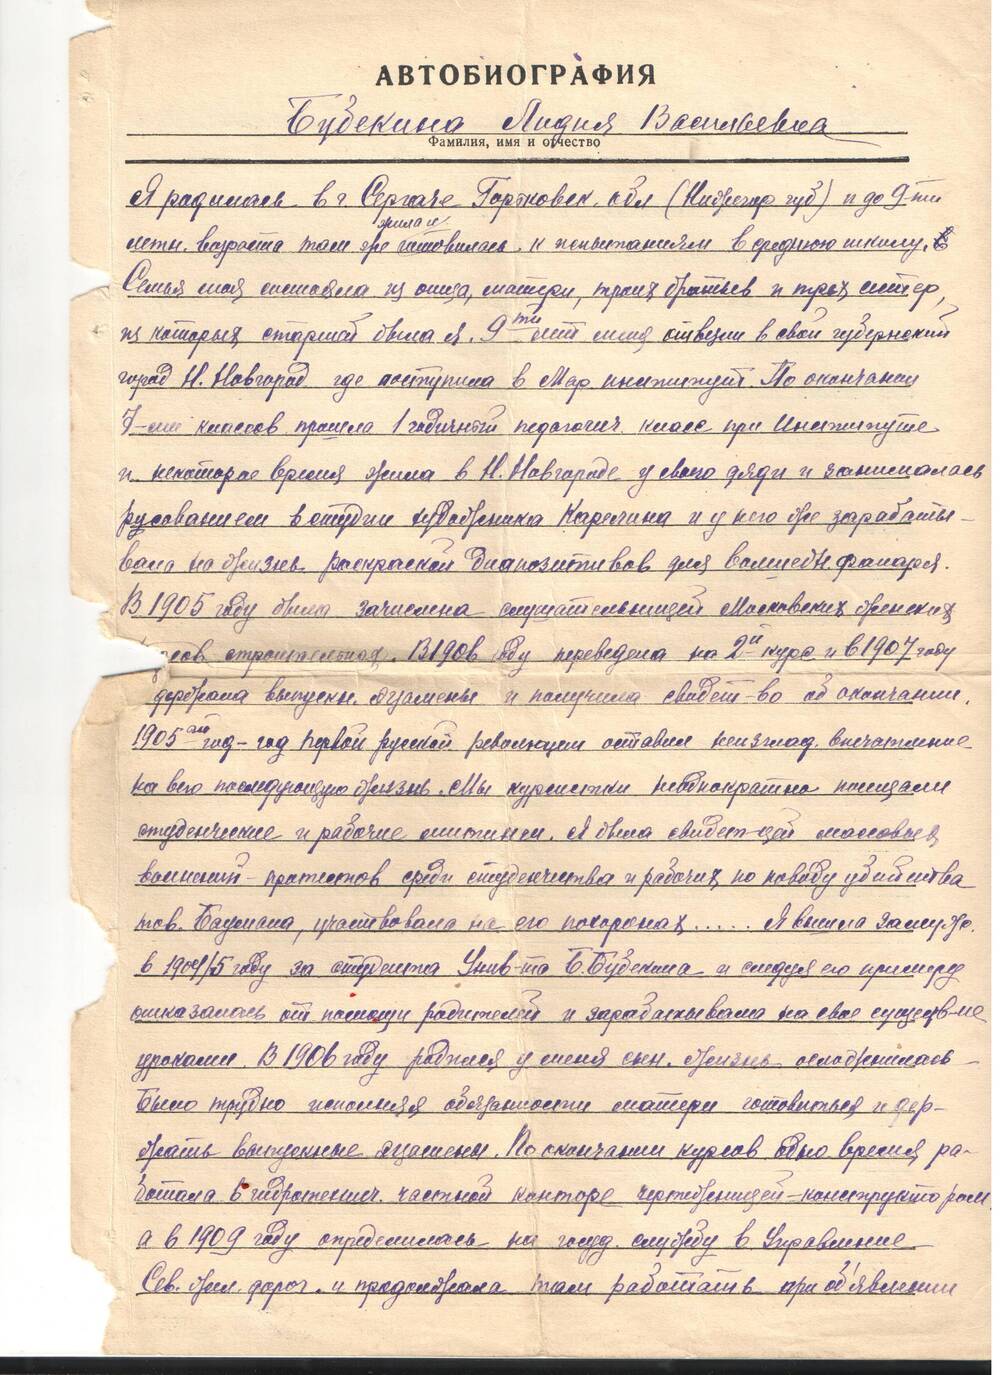 АВТОБИОГРАФИЯ
Бубекина Лидия Васильевна
Фамилия, имя и отчество
Я родилась в г. Сергаче Горьковск. обл (Нижегор губ) и до 9-ти
жила и
летн. возраста там же готовилась к испытаниям в среднюю школу.
Семья моя состояла из отца, матери, троих братьев и трех сестер,
из которых старшей была я. 9ти лет меня отвезли в свой губернский
город Н. Новгород где поступила в Мар. институт. По окончании
7-ми классов прошла 1 годичный педагогич. класс при Институте
и некоторое время жила в Н. Новгороде у своего дяди и занималась
рисованием в студии художника Карелина и у него же зарабаты-
вала на жизнь раскраской диапозитивов для волшебн фонаря.
В 1905 году была зачислена слушательницей Московских женских
курсов строительных. В 1906 году переведена на 2й курс и в 1907 году
держала выпускн. экзамены и получила свидет-во об окончании.
1905ый год - год первой русской революции оставил неизглад. впечатление
на всю последующую жизнь. Мы курсистки неоднократно посещали
студенческие и рабочие митинги. Я была свидет-цей массовых
волнений - протестов среди студенчества и рабочих по поводу убийства
тов. Баумана, участвовала на его похоронах..... Я вышла замуж
в 1904/5 году за студента Унив-та Б. Бубекина и следуя его примеру
отказалась от помощи родителей и зарабатывала на свое существ-ие
уроками. В 1906 году родился у меня сын. Жизнь осложнилась
Было трудно исполняя обязанности матери готовиться и дер-
жать выпускные экзамены. По окончании курсов одно время ра-
ботала в гидротехнич. частной конторе чертежницей-конструктором,
а в 1909 году определилась на госуд. службу в Управление
Сев. жел. дорог. и продолжала там работать при объявлении